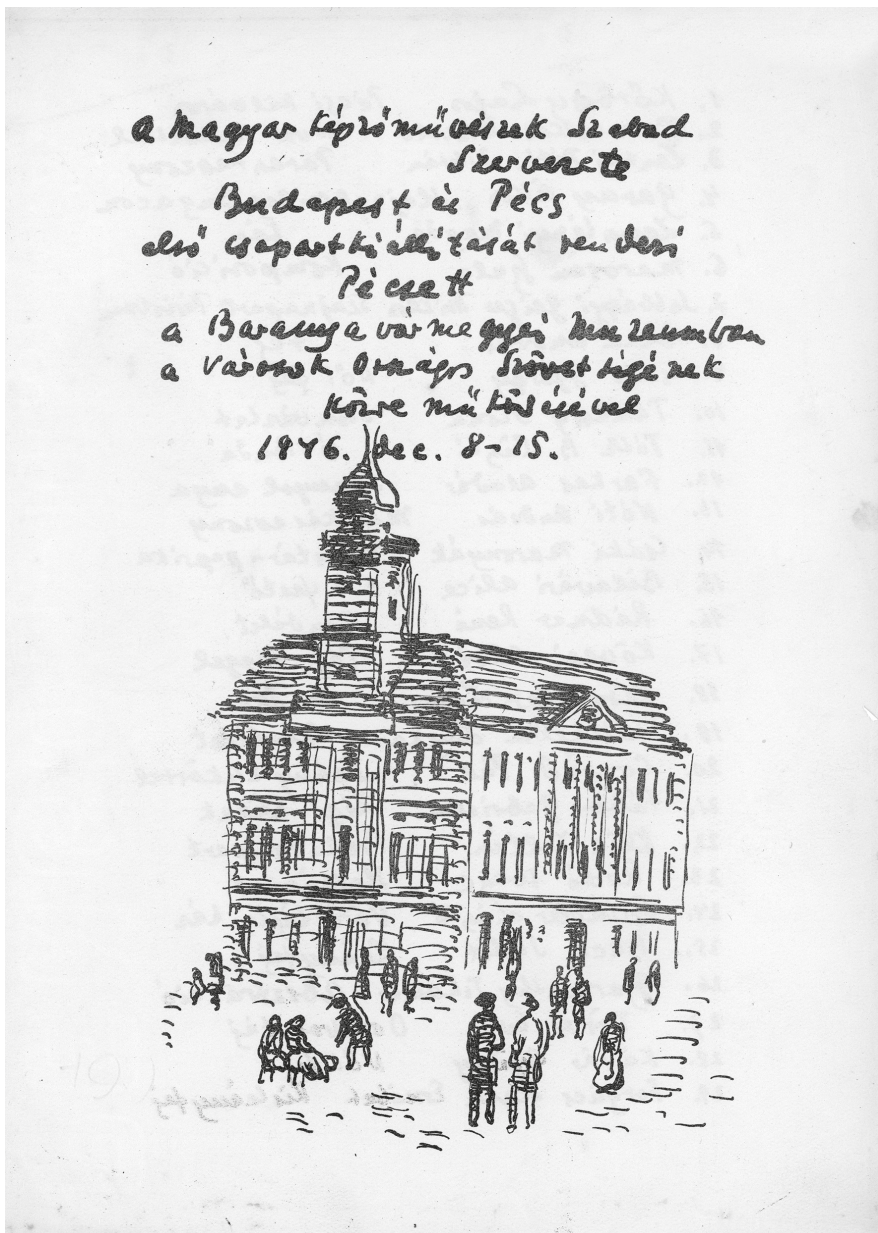 A Magyar Képzőművészek Szabad
Szervezete
Budapest és Pécs
első csoportkiállítását rendezi
Pécsett
a Baranya vármegyei Muzeumban
a Városok Országos Szövetségének
közreműködésével
1946. dec. 8-15.